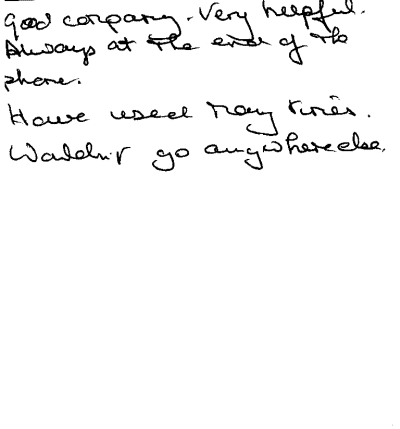 Good company. Very helpful.
Always at the end of the
phone.
Have used many times.
Wouldn't go anywhere else.